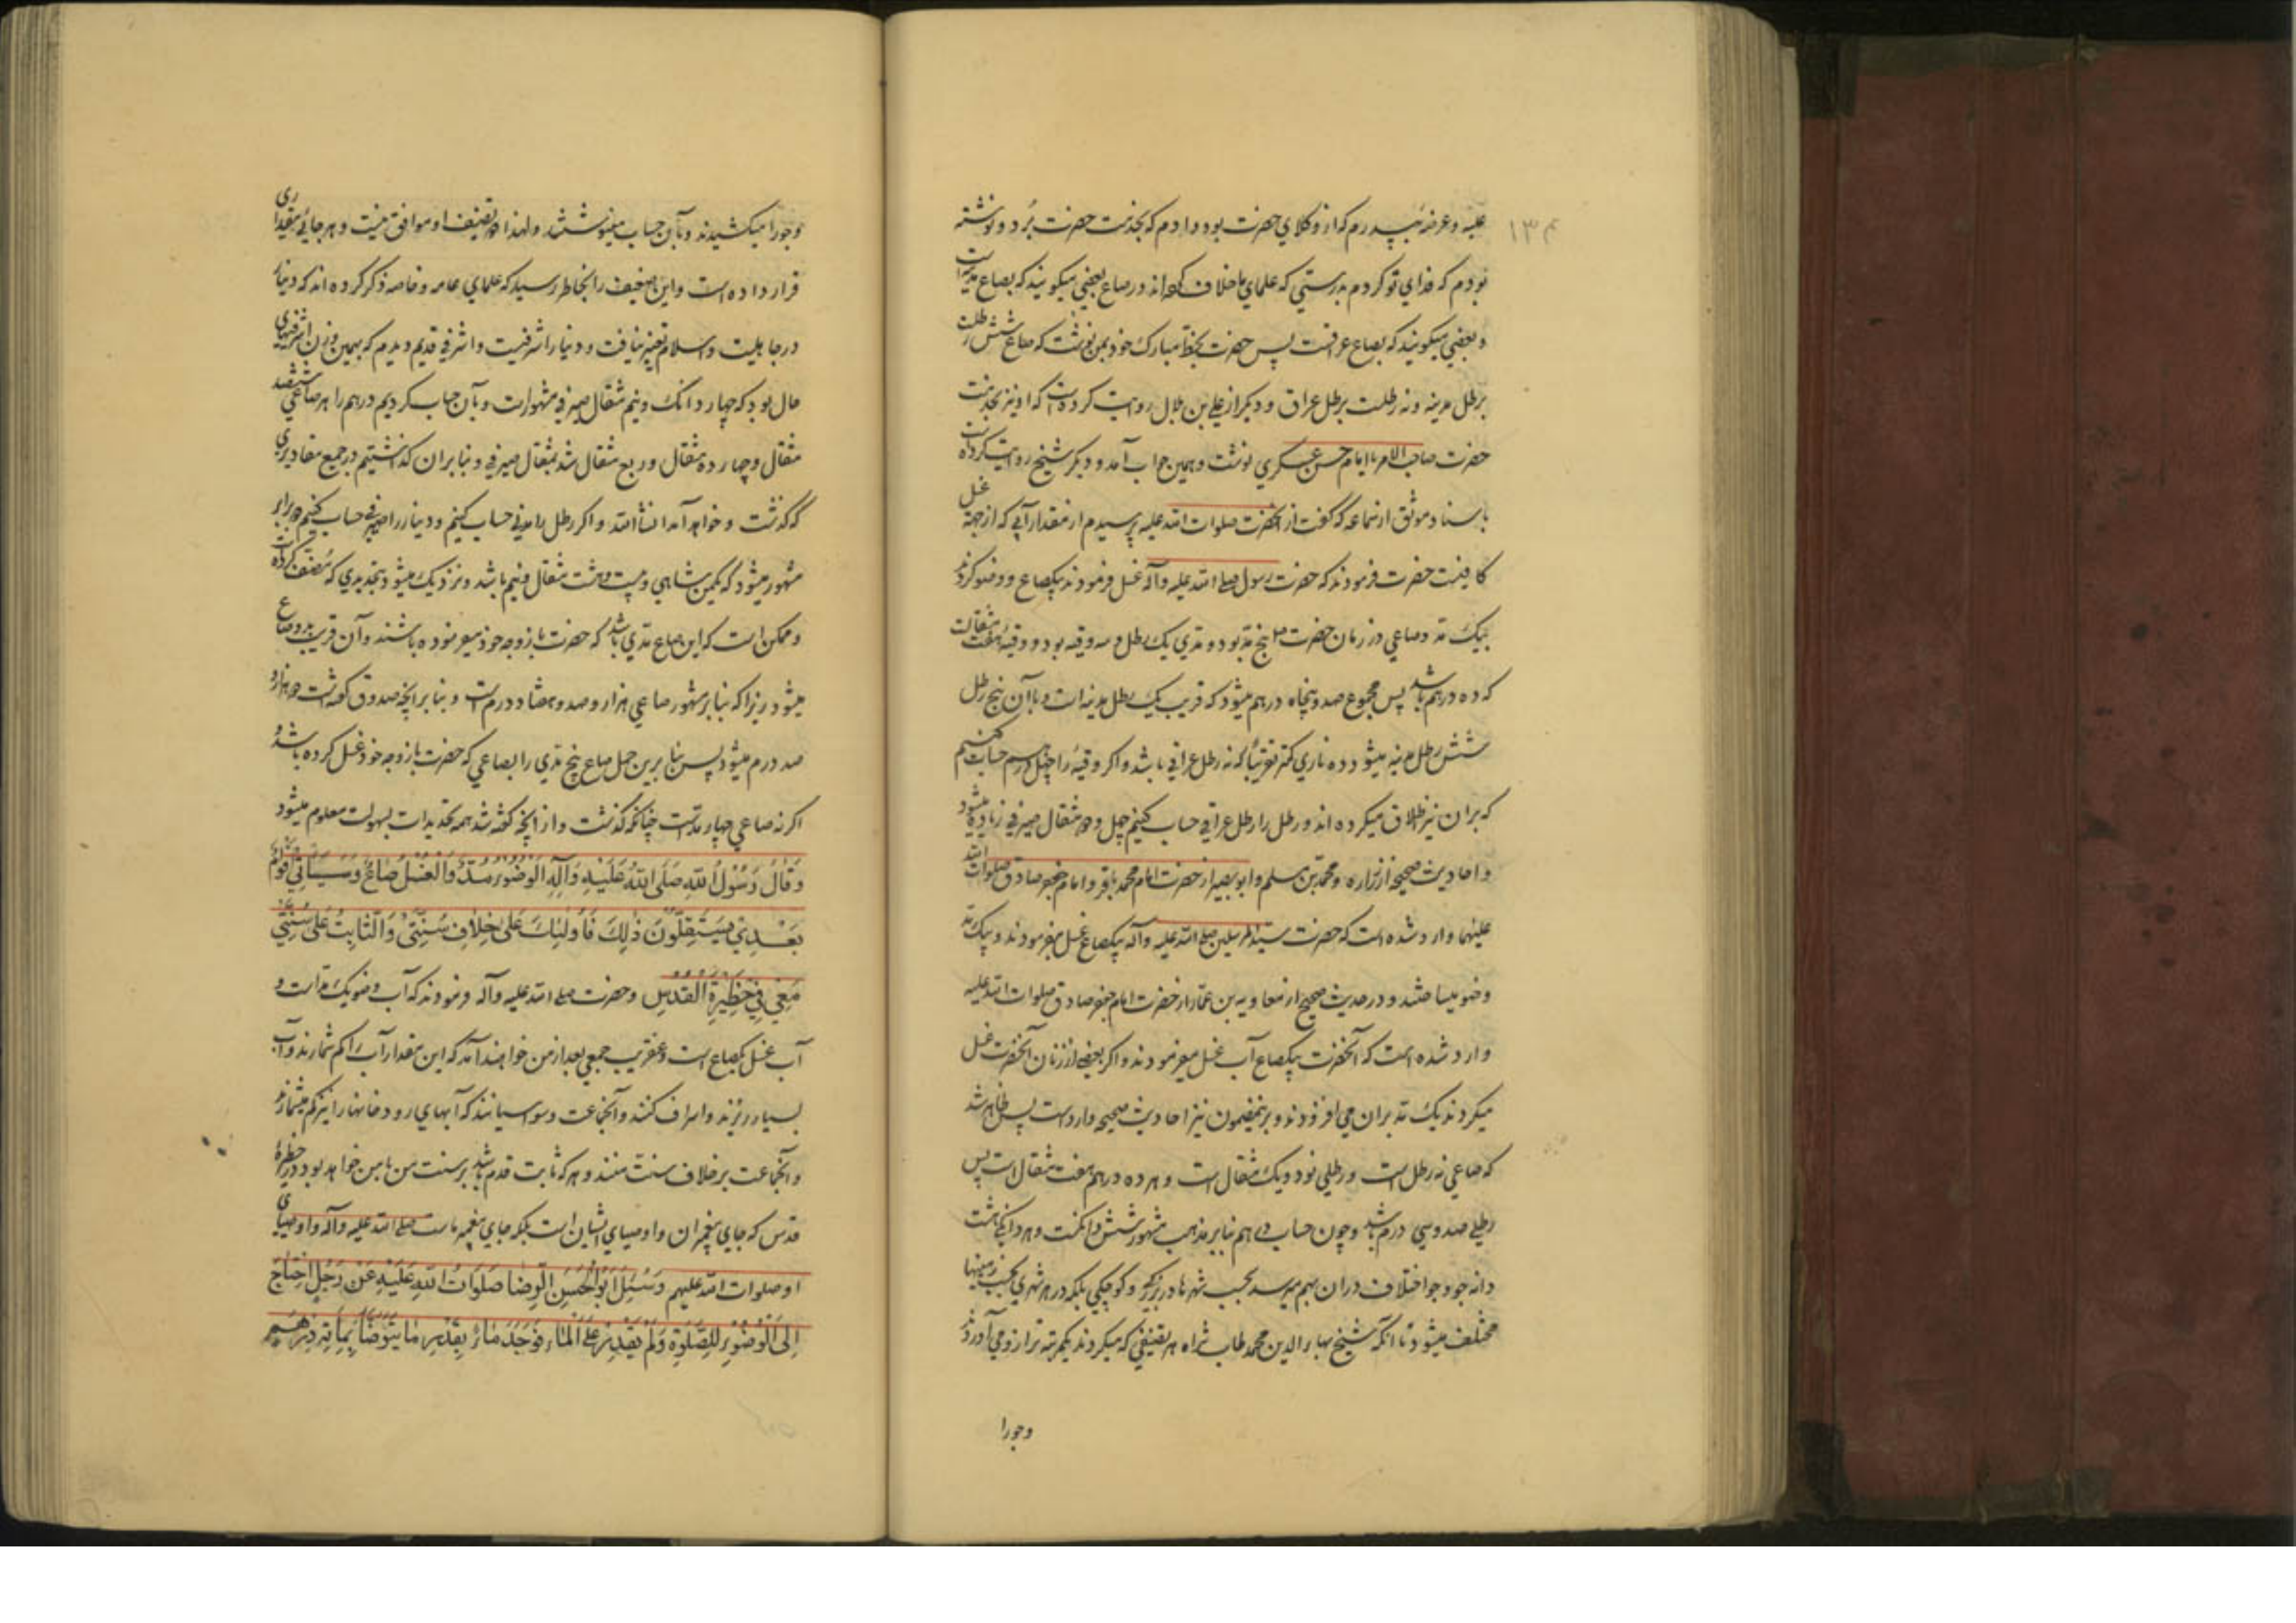 ۱۳م
علیه و عرضه بپدرم که از وکلای حضرت بود دادم که بخدمت حضرت برد و نوشته
بودم که فدای تو گردم بدرستی که علمای ما خلاف کرده‌اند در صاع بعضی میکویند که بصاع مدینه است
و بعضی میکویند که بصاع عراقست پس حضرت بخط مبارک خود بمن نوشت که صاع شش رطلست
برطل مدینه و نه رطلست برطل عراق و دیکر از علی بن بلال روایت کرده است که او نیز بخدمت
حضرت صاحب الامر یا امام حسن عسکری نوشت و همین جواب آمد و دیکر شیخ روایت کرده است
باسناد موثق از سماعه که گفت از آنحضرت صلوات الله علیه پرسیدم از مقدار آبی که از جهة غسل
کافیست حضرت فرمودند که حضرت رسول صلی الله علیه وآله غسل فرمودند بیکصاع و وضو کردند
بیک مد و صاعی در زمان حضرت ص پنج مد بود و مدی یک رطل و سه وقیه بود و وقیه هفت مثقالست
که ده درهم باشد پس مجموع صد و پنجاه درهم میشود که قریب بیک رطل مدینه است و با آن پنج رطل
شش رطل مدینه میشود و ده ناری کمتر تقریبا که نه رطل عراقی باشد و اکر وقیه را چهل درهم حساب کنیم
که بر آن نیز اطلاق میکرده‌اند و رطل را رطل عراقی حساب کنیم چهل و دو مثقال صیرفی زیاده میشود
و احادیث صحیحه از زراره و محمد بن مسلم و ابو بصیر از حضرت امام محمد باقر و امام جعفر صادق صلوات الله
علیهما وارد شده است که حضرت سید المرسلین صلی الله علیه وآله بیکصاع غسل میفرمودند و بیک مد
وضو میساختند و در حدیث صحیح از معاویه بن عمار از حضرت امام جعفر صادق صلوات الله علیه
وارد شده است که آنحضرت بیکصاع آب غسل میفرمودند و اکر بعضی از زنان آنحضرت غسل
میکردند یک مد بر آن می افزودند و برینمضمون نیز احادیث صحیحه وارد است پس ظاهر شد
که صاعی نه رطل است و رطلی نود و یک مثقال است و هر ده درهم هفت مثقال است پس
رطلی صد و سی درم باشد و چون حساب درهم بنابر مذهب مشهور شش دانکست و هر دانکی هشت
دانه جو و جو اختلاف در آن بهم میرسد بحسب شهرها در بزرکی و کوچکی بلکه در هر شهری بحسب زمینها
مختلف میشود تا آنکه شیخ بهاء الدین محمد طاب ثراه هر تصنیفی که میکردند یکمرتبه ترازو می آوردند
وجورا
وجورا میکشیدند و بآن حساب مینوشتند و لهذا دو تصنیف او موافق نیست و هر جائی مقداری
قرار داده است و این ضعیف را بخاطر رسید که علمای عامه و خاصه ذکر کرده‌اند که دینار
در جاهلیت و اسلام تغییر نیافت و دینار اشرفیست و اشرفی قدیم دیدم که بهمین وزن اشرفیهای
حال بود که چهار دانک و نیم مثقال صیرفی مشهور است و بآن حساب کردیم درهم را هر صاعی ششصد
مثقال و چهارده مثقال و ربع مثقال شد بمثقال صیرفی و بنا بر آن گذاشتیم در جمیع مقادیری
که گذشت و خواهد آمد انشاء الله و اکر رطل را مدنی حساب کنیم و دینار را صیرفی حساب کنیم دو برابر
مشهور میشود که یکمن شاهی و بیست و هشت مثقال و نیم باشد و نزدیک میشود بتحدیدی که مصنف کرده است
و ممکن است که این صاع مدی باشد که حضرت با زوجه خود میفرموده باشند و آن قریب بدو صاع
میشود زیرا که بنا بر مشهور صاعی هزار و صد و هفتاد درم است و بنا بر آنچه صدوق گفته است دو هزار و
صد درم میشود پس بنا برین حمل صاع پنج مدی را بصاعی که حضرت با زوجه خود غسل کرده باشد و
اکر نه صاعی چهار مدست چنانکه گذشت و از آنچه گفته شد همه تحدیدات بسهولت معلوم میشود
وَقَالَ رَسُوْلُ اللهِ صَلَّی اللهُ عَلَیْهِ وَآلِهِ الْوُضُوْءُ مُدٌّ وَالْغُسْلُ صَاعٌ وَسَیَأْتِی أَقْوَامٌ
بَعْدِیْ یَسْتَقِلُّوْنَ ذٰلِكَ فَأُولٰئِكَ عَلٰی خِلَافِ سُنَّتِیْ وَالثَّابِتُ عَلٰی سُنَّتِیْ
مَعِیْ فِیْ حَظِیْرَةِ الْقُدْسِ و حضرت صلی الله علیه وآله فرمودند که آب وضو یک مد است و
آب غسل یکصاع است و عنقریب جمعی بعد از من خواهند آمد که این مقدار آب را کم شمارند و آب
بسیار ریزند و اسراف کنند و آنجماعت وسواسیانند که آبهای رودخانها را نیز کم میشمارند
و آنجماعت بر خلاف سنت منند و هر که ثابت قدم باشد بر سنت من با من خواهد بود در حظیرۀ
قدس که جای پیغمبران و اوصیای ایشان است بلکه جای پیغمبر ماست صلی الله علیه وآله و اوصیای
او صلوات الله علیهم وَسُئِلَ اَبُوْ الْحَسَنِ الرِّضَا صَلَوَاتُ اللهِ عَلَیْهِ عَنْ رَجُلٍ احْتَاجَ
اِلَی الْوُضُوْءِ لِلصَّلٰوةِ وَلَمْ یَقْدِرْ عَلَی الْمَاءِ فَوَجَدَ مَاءً بِقَدْرِ مَا یَتَوَضَّأُ بِمِائَةِ دِرْهَمٍ